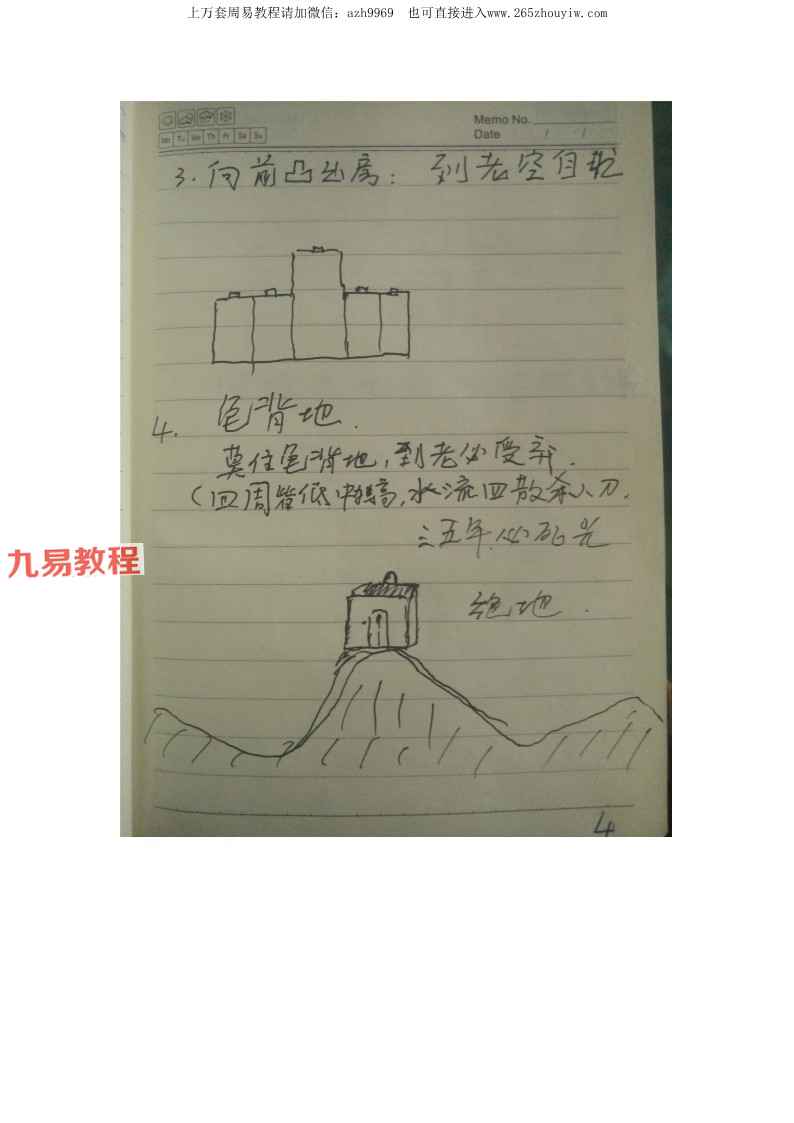 上万套周易教程请加微信：azh9969 也可直接进入www.265zhouyiw.com
Memo No.
Mo Tu We Th Fr Sa Su
Date / /
3. 向前凸出房：到老空自忙
4. 龟背地．
莫住龟背地，到老必受弃．
（四周皆低中独高，水流四散杀人刀．
三五年必死光
九易教程
绝地．
4